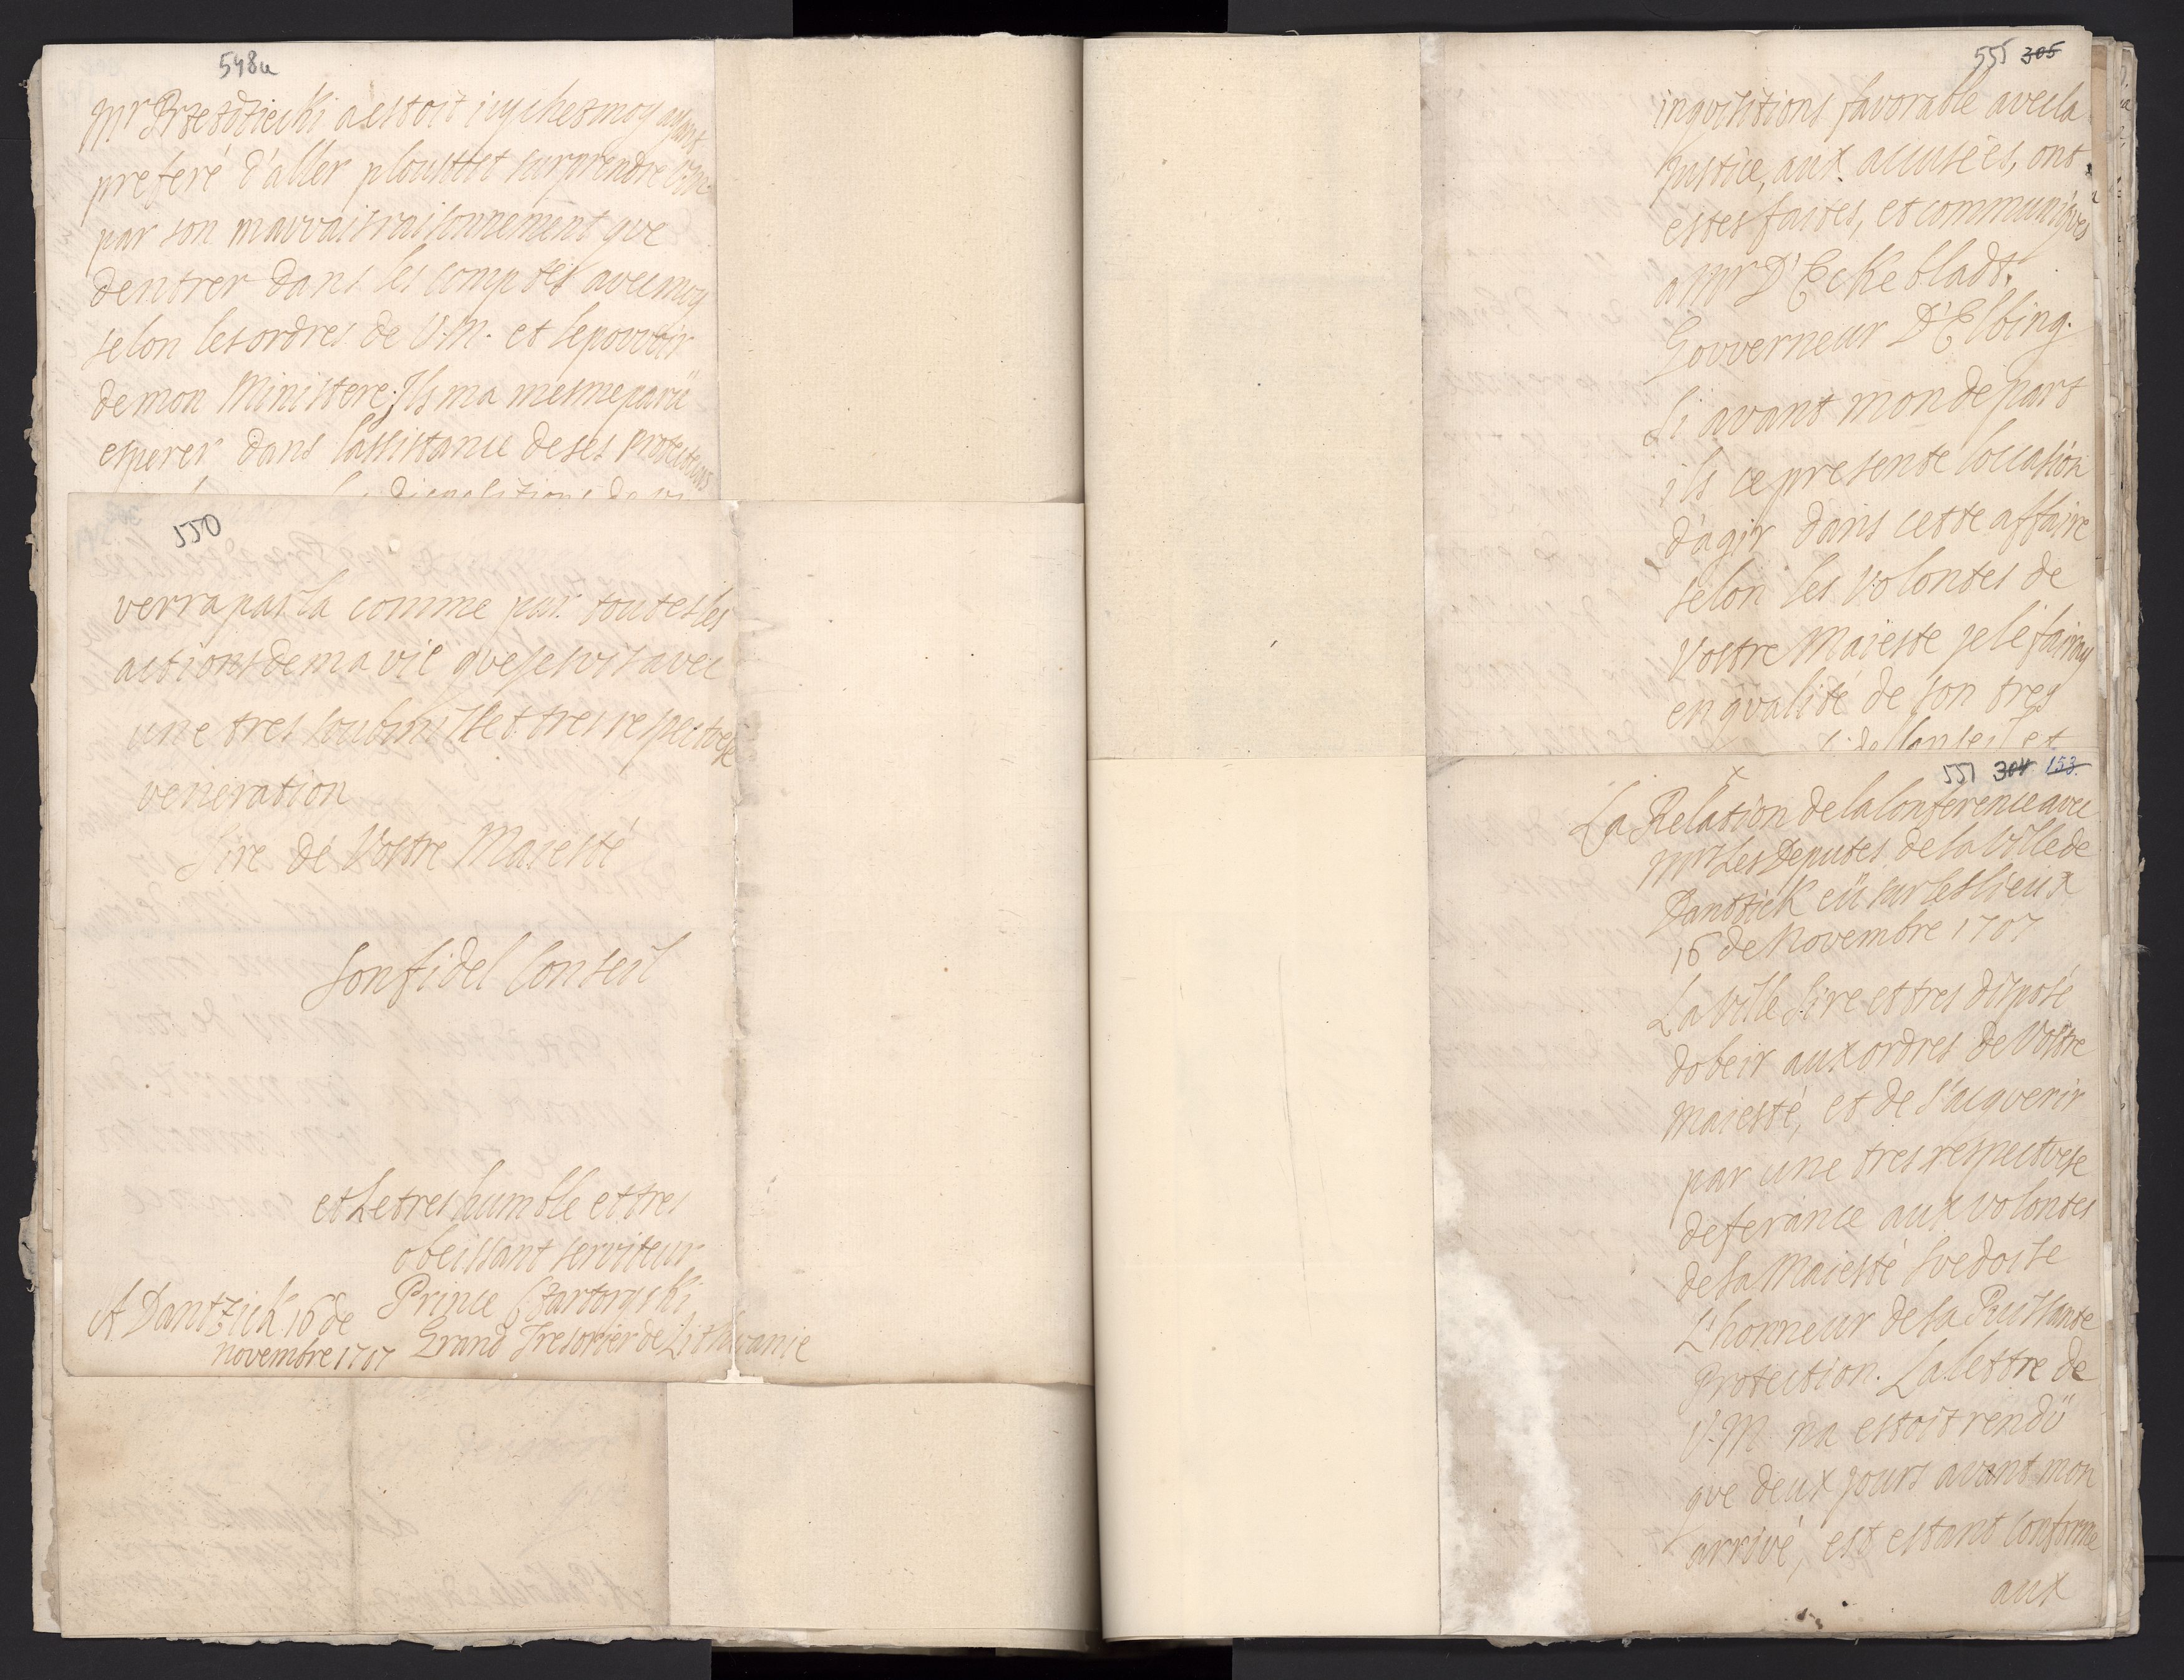 548a
Mr Przesdziecki a estoit icy chesmoy ayant
preferé d'aller ploustot surprendre V.M.
par son mauvais raisonnement que
dentrer dans les comptes avec moy
selon les ordres de V.M. et le pouvoir
de mon Ministere; Ils ma mesme parü
esperer dans lassistance de ses Protecteurs
dispositions de
550
verra par la comme par toutes les
actions de ma vie que je suis avec
une tres soubmisse et tres respectuese
veneration
Sire de Vostre Maiesté
Son fidel Conseil
et Le tres humble et tres
obeissant serviteur
Prince Czartoryski
Grand Tresorier de Lithuanie
A Dantzick 16 de
novembre 1707
555 305
inquisitions favorable avec la
justice, aux accuseés, ont
estes faites, et communiqués
a Mr D'Eckebladt.
Gouverneur D'Elbing.
Si avant mon depart
ils ce presente loccasion
d'agir dans cette affaire
selon les volontes de
Vostre Maieste je le fairay
en qualité de son tres
del Conseil et
551 304 153
La Relation de la Conference avec
Mrs Les Deputes de la Ville de
Dantzick eü sur les lieux
16 de Novembre 1707
La Ville Sire et tres disposé
dobeir aux ordres de Vostre
Maiesté, et de s'acquerir
par une tres respectuese
deferance aux volontes
de sa Maiesté Suedoise
L'honneur de sa Puissante
Protection. La lettre de
V.M na estoit rendü
que deux jours avant mon
arrivé, est estant conforme
aux